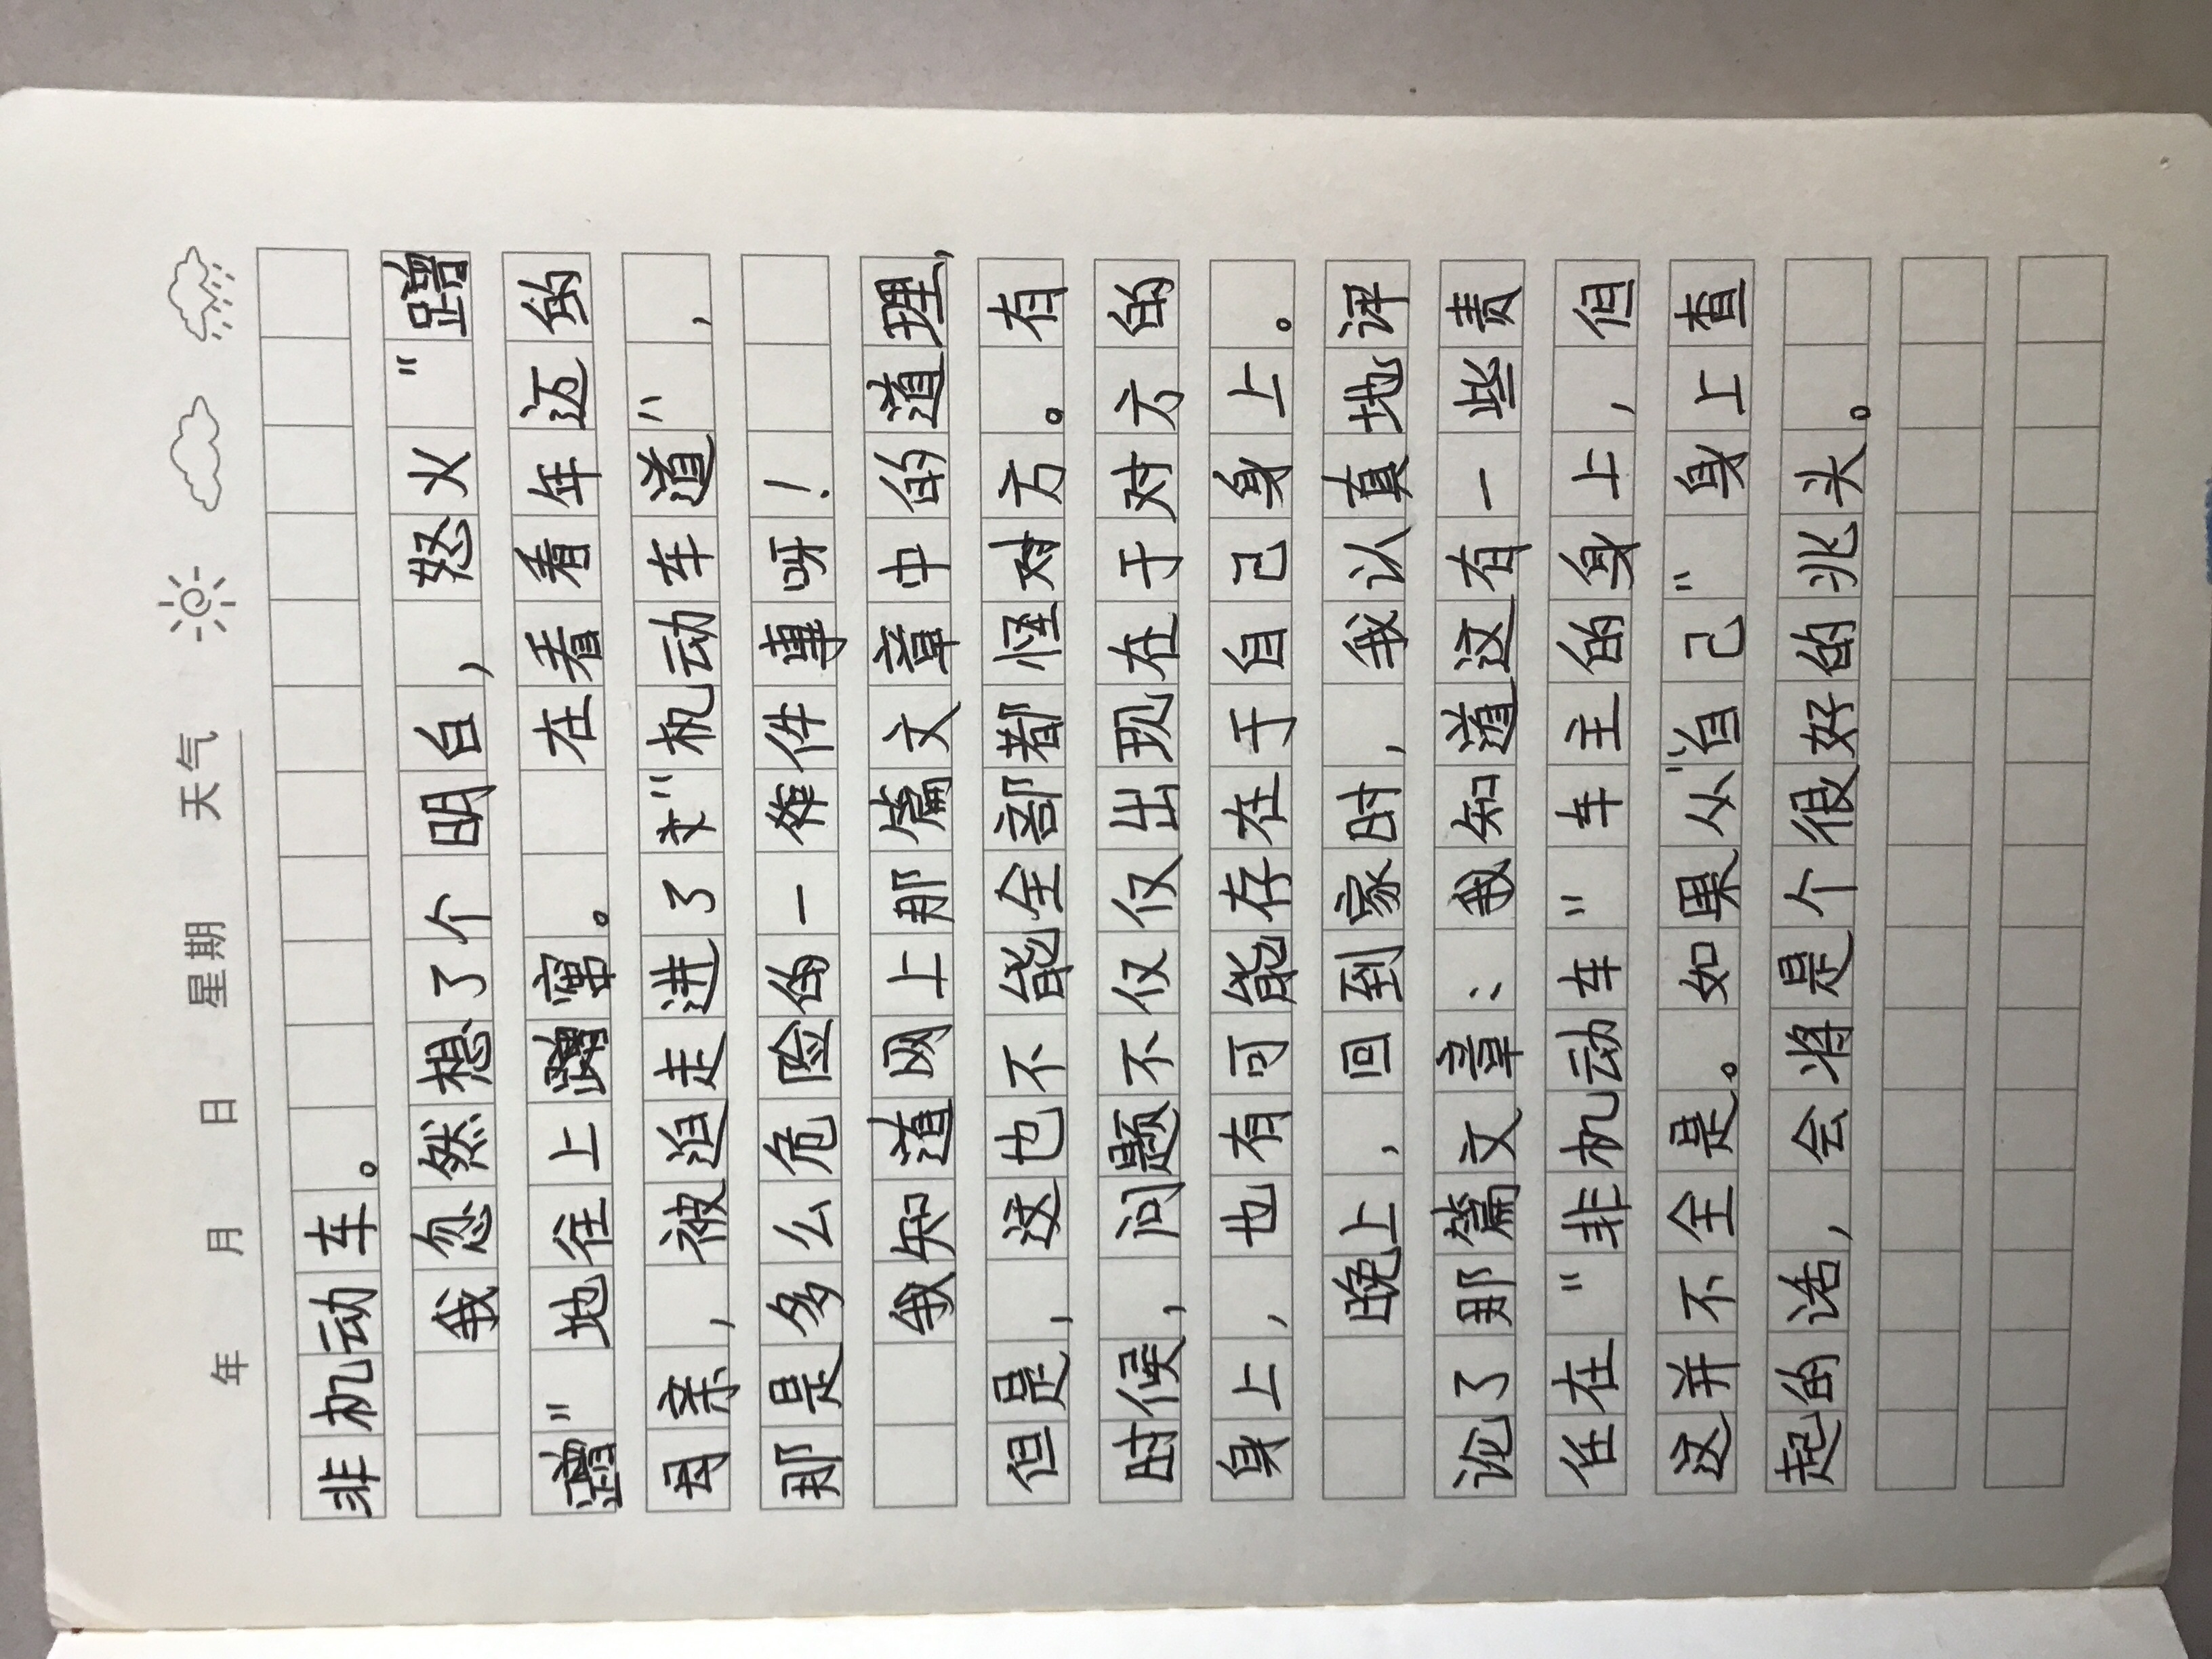 年 月 日 星期 天气
非机动车。
我忽然想了个明白，怒火“蹭
蹭”地往上窜。在看看年迈的
母亲，被迫走进了“机动车道”，
那是多么危险的一件事呀！
我知道网上那篇文章中的道理，
但是，这也不能全部都怪对方。有
时候，问题不仅仅出现在于对方的
身上，也有可能存在于自己身上。
晚上，回到家时，我认真地评
论了那篇文章：我知道这有一些责
任在“非机动车”车主的身上，但
这并不全是。如果从“自己”身上查
起的话，会将是个很好的兆头。